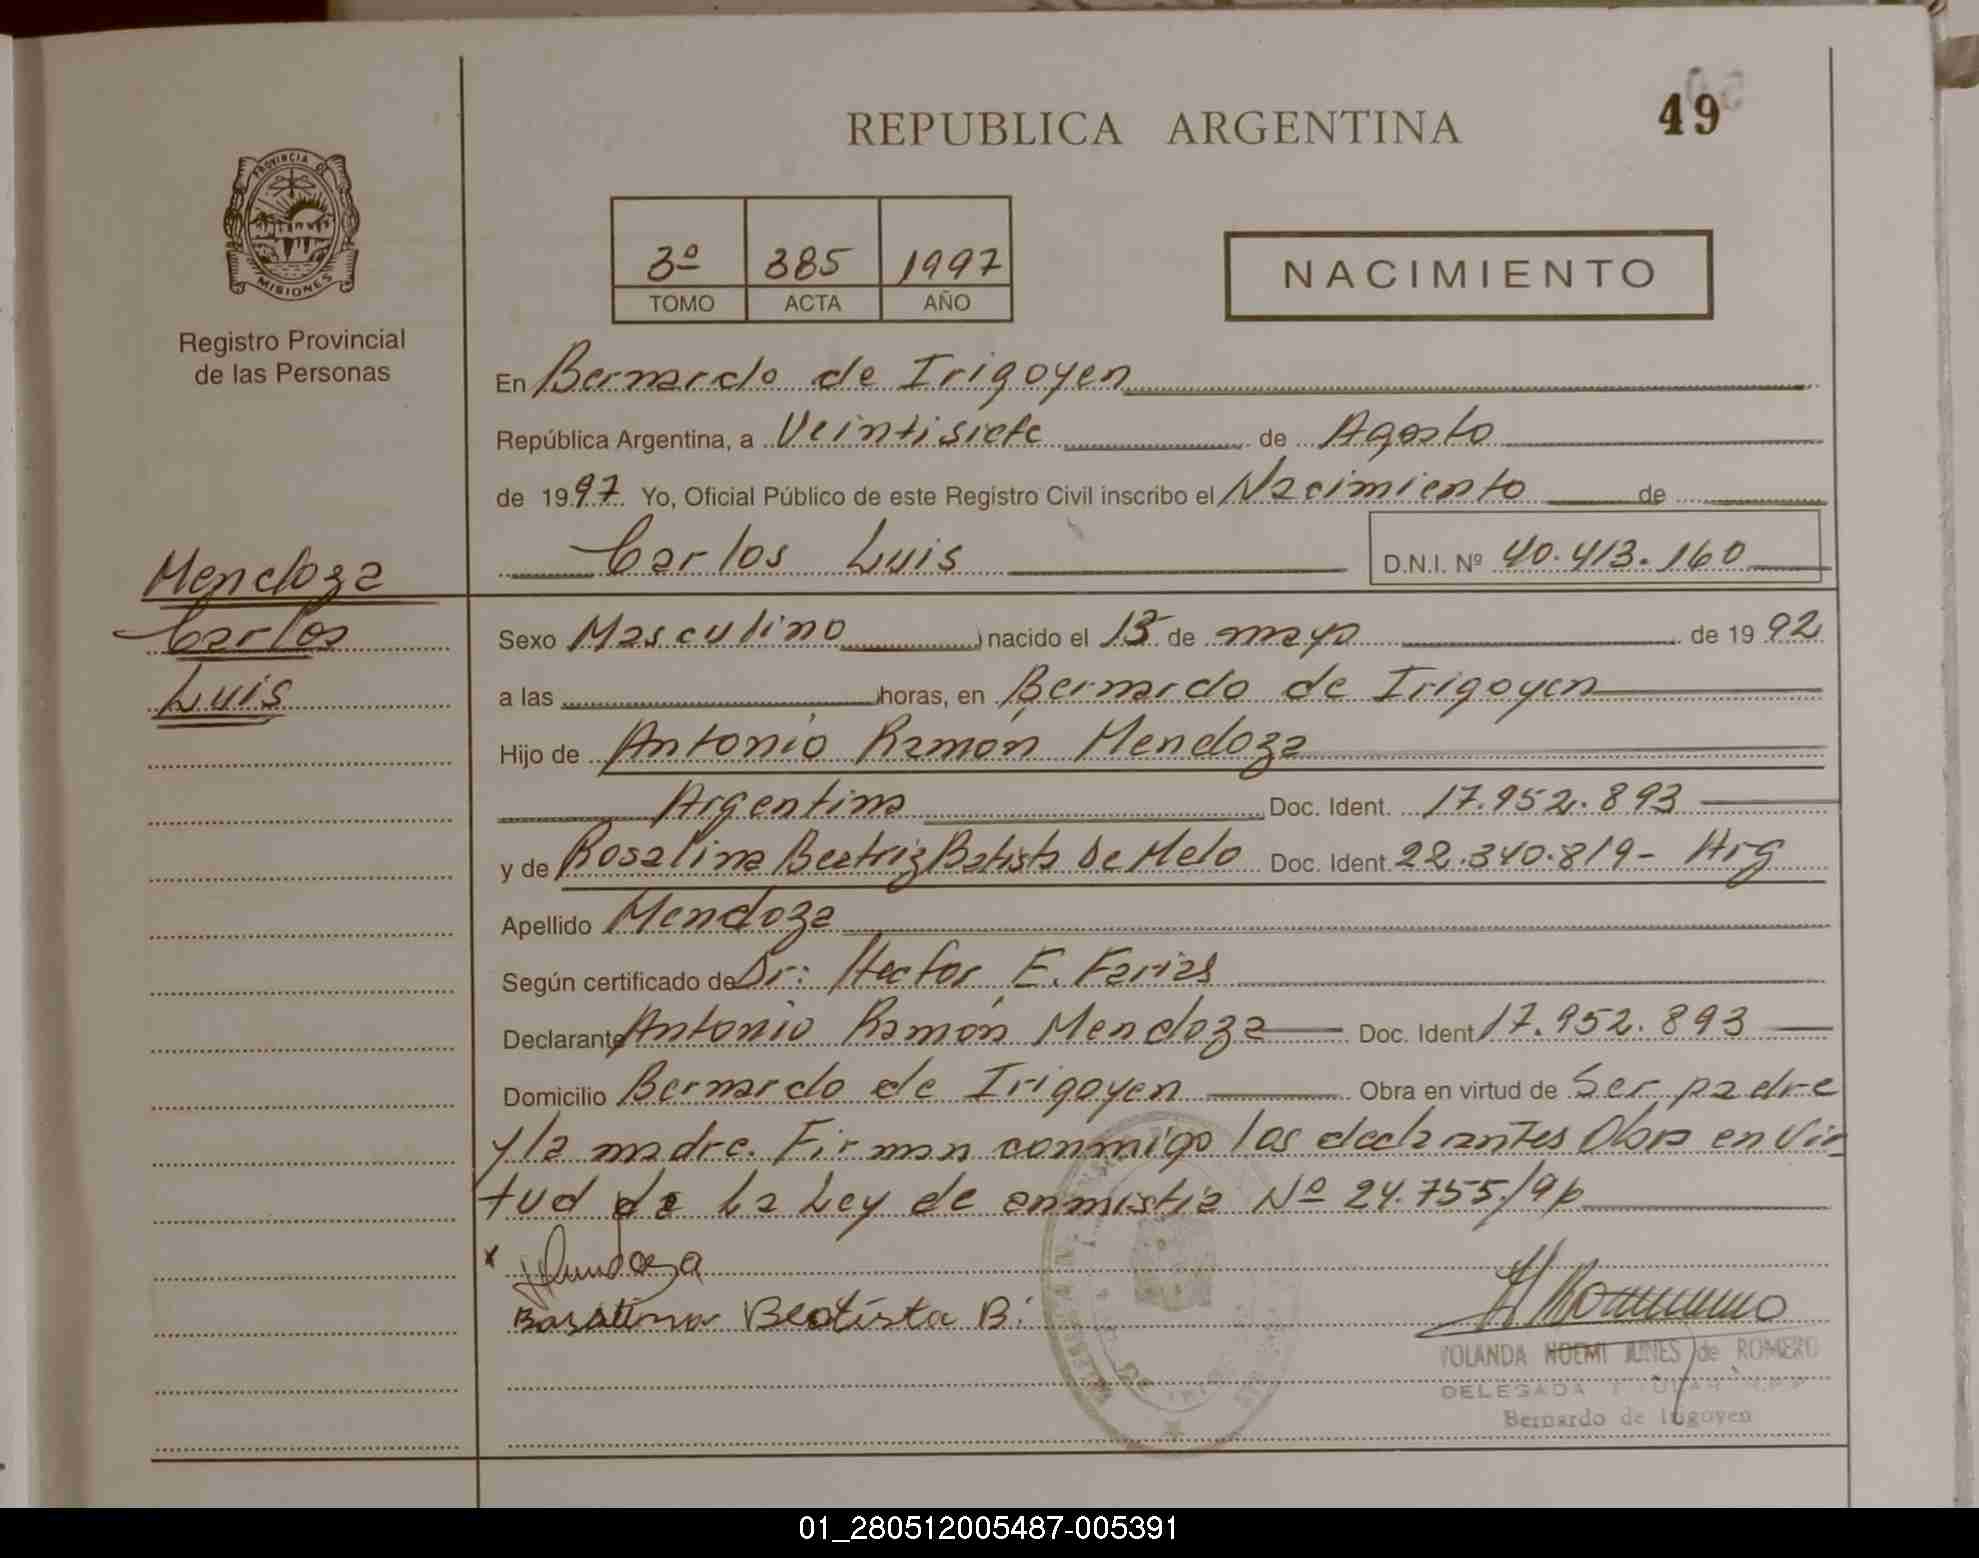 49
REPUBLICA ARGENTINA
PROVINCIA DE
MISIONES
Registro Provincial
de las Personas
3º 385 1997
TOMO ACTA AÑO
NACIMIENTO
En Bernardo de Irigoyen
República Argentina, a Veintisiete de Agosto
de 1997 Yo, Oficial Público de este Registro Civil inscribo el Nacimiento de
Carlos Luis D.N.I. Nº 40.413.160
Mendoza
Carlos
Luis
Sexo Masculino nacido el 13 de mayo de 1992
a las horas, en Bernardo de Irigoyen
Hijo de Antonio Ramón Mendoza
Argentina Doc. Ident. 17.952.893
y de Rosalina Beatriz Batista De Melo Doc. Ident. 22.340.819- Arg
Apellido Mendoza
Según certificado de Dr: Hector E. Farias
Declarante Antonio Ramón Mendoza Doc. Ident. 17.952.893
Domicilio Bernardo de Irigoyen Obra en virtud de Ser padre
y la madre. Firman conmigo los declarantes Obra en vir
tud de La Ley de anmistia Nº 24.755/96
x Mendoza
Rosalina Beatista B.
YOLANDA NOEMI de ROMERO
DELEGADA TITULAR
Bernardo de Irigoyen
01_280512005487-005391